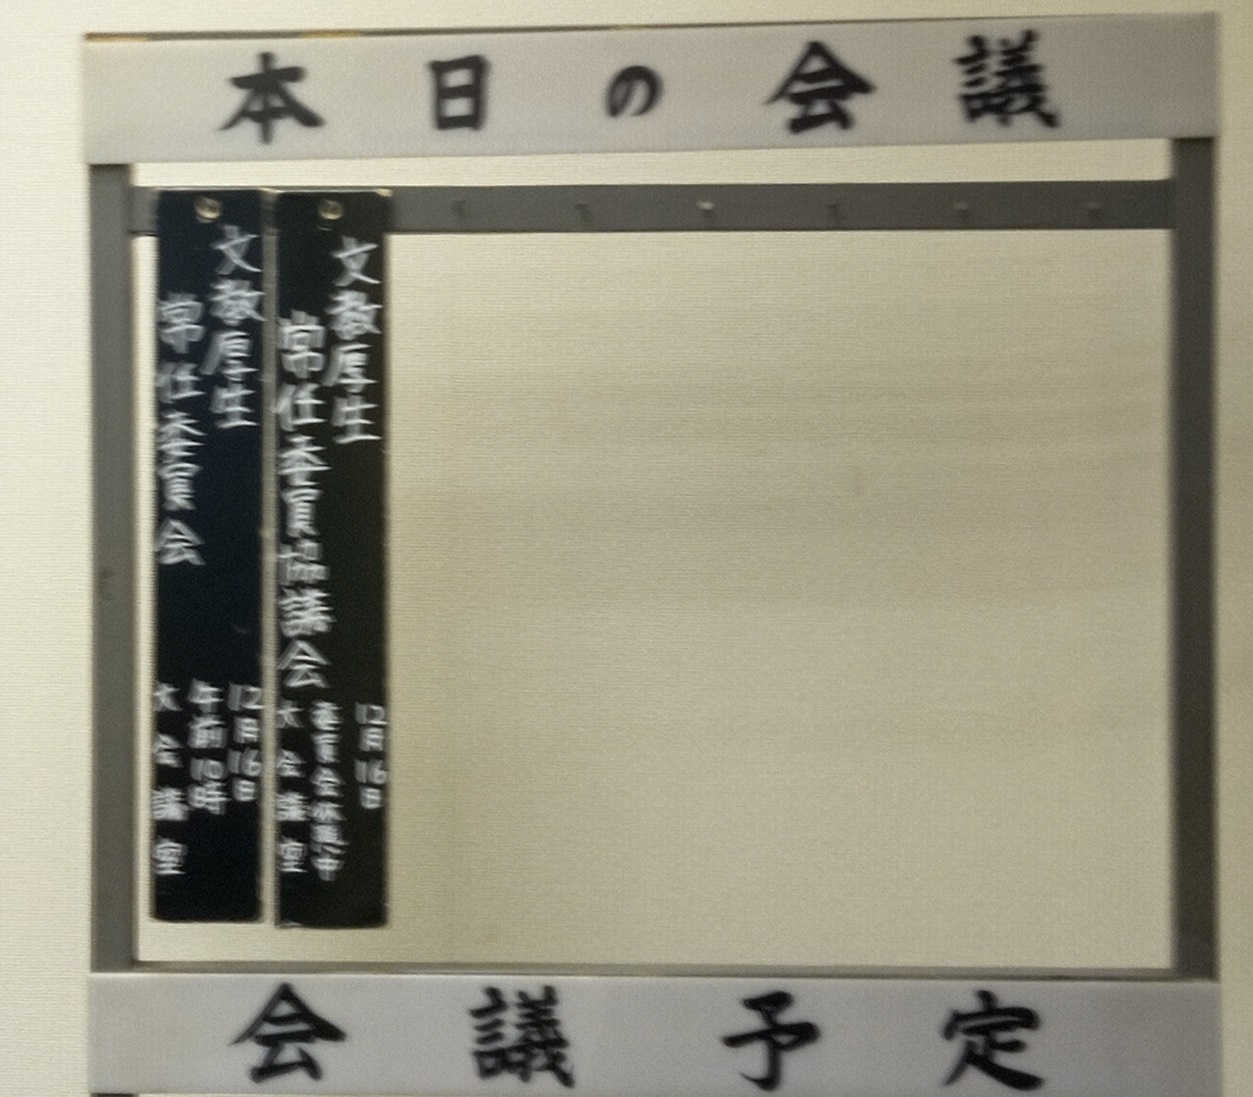 本日の会議
文教厚生
常任委員会
12月16日
午前10時
大会議室
文教厚生
常任委員協議会
12月16日
委員会休憩中
大会議室
会議予定